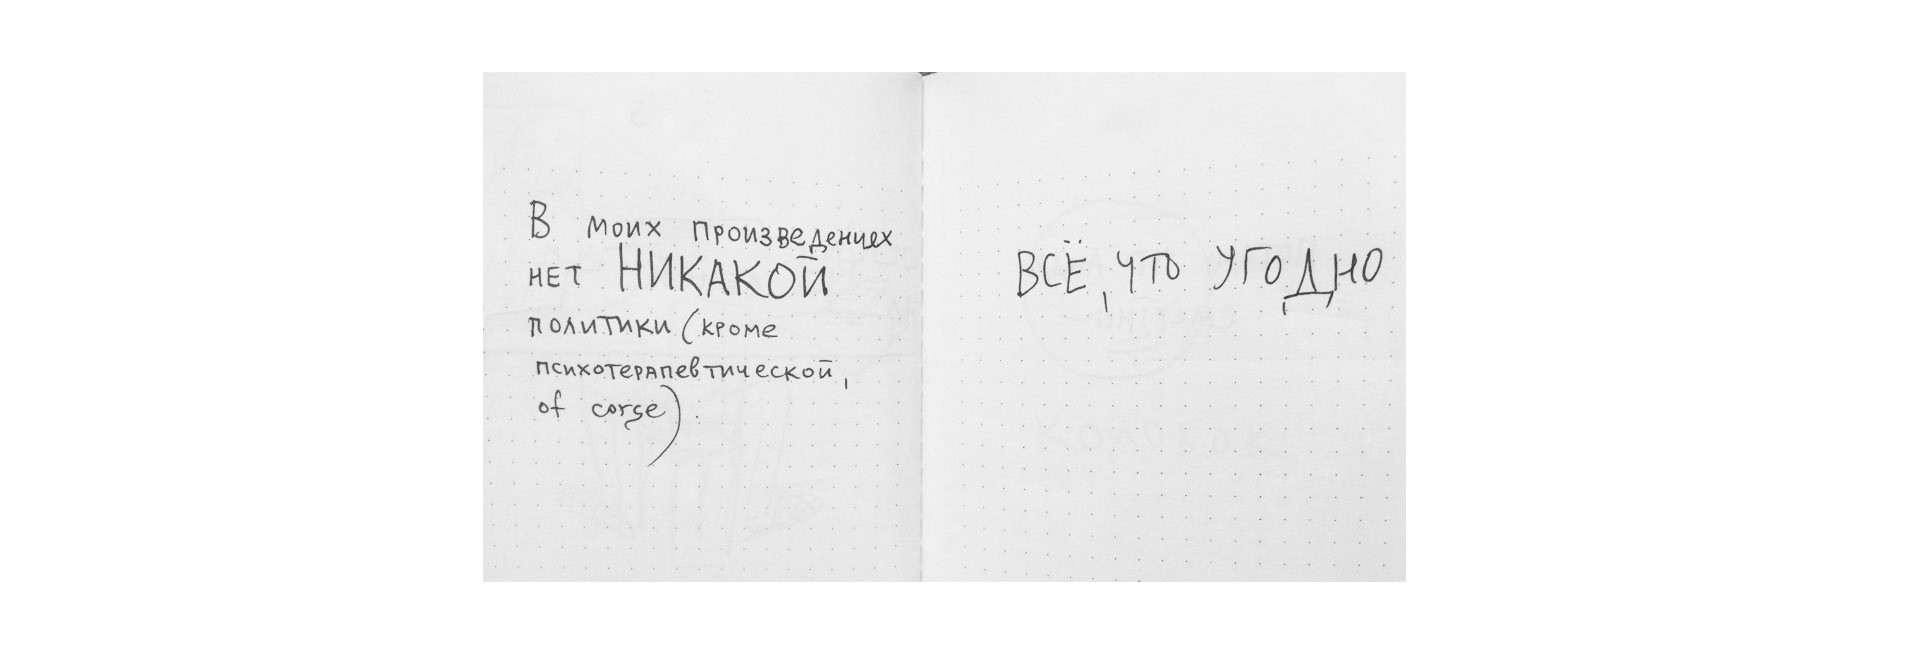 В моих произведениях
нет НИКАКОЙ
политики (кроме
психотерапевтической,
of corse).
ВСЁ, ЧТО УГОДНО